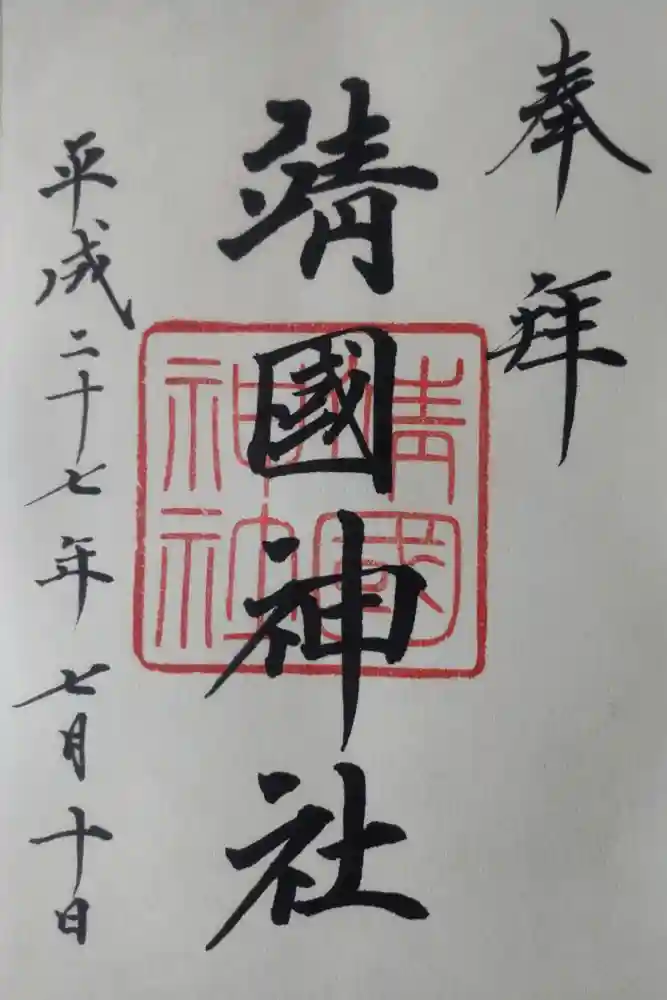 奉拝
靖國神社
靖國神社
平成二十七年七月十日